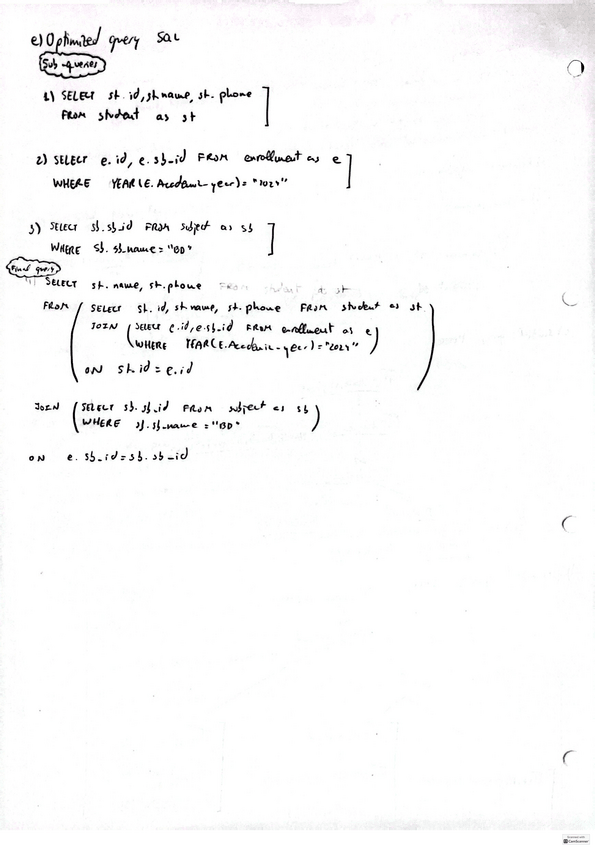 e) Optimized query SQL
Sub-queries
1) SELECT st.id, st.name, st.phone
FROM student as st
2) SELECT e.id, e.sb_id FROM enrollment as e
WHERE YEAR(E.Academic-year) = "2024"
3) SELECT sb.sb_id FROM subject as sb
WHERE sb.sb_name = "BD"
Final query
SELECT st.name, st.phone FROM student as st
FROM ( SELECT st.id, st.name, st.phone FROM student as st
JOIN ( SELECT e.id, e.sb_id FROM enrollment as e
WHERE YEAR(E.Academic-year) = "2024" )
ON st.id = e.id )
JOIN ( SELECT sb.sb_id FROM subject as sb
WHERE sb.sb_name = "BD" )
ON e.sb_id = sb.sb_id
CamScanner